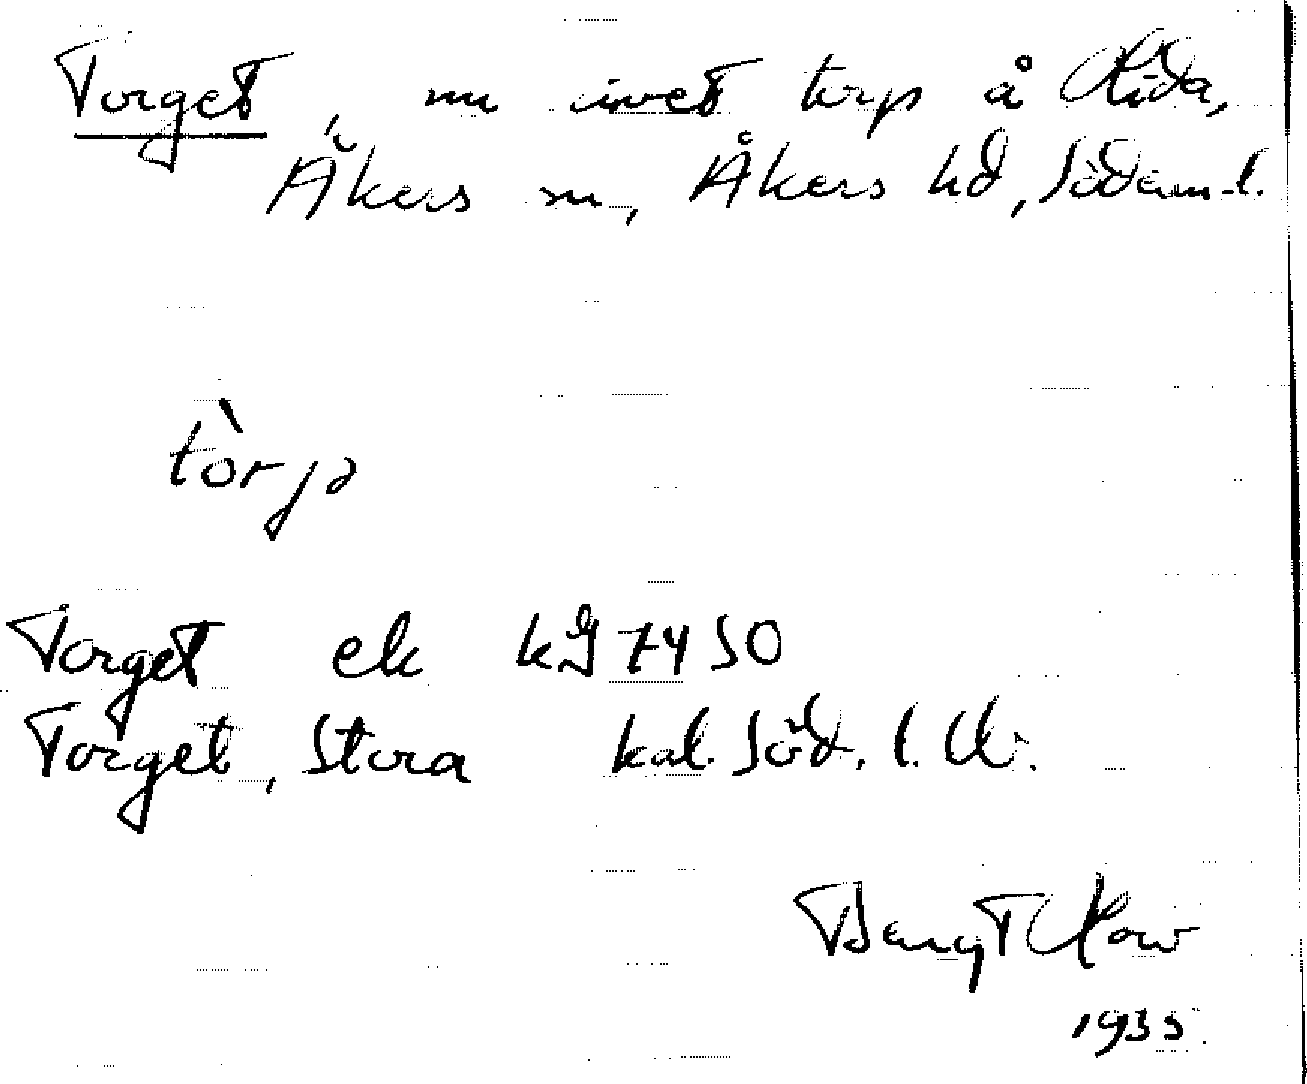 Torget, nu rivet torp å Lida,
Åkers sn, Åkers hd, Södermanl.
tòrjə
Torget ek kg 7450
Torget, Stora kal. Söd. l.
Bengt
1935